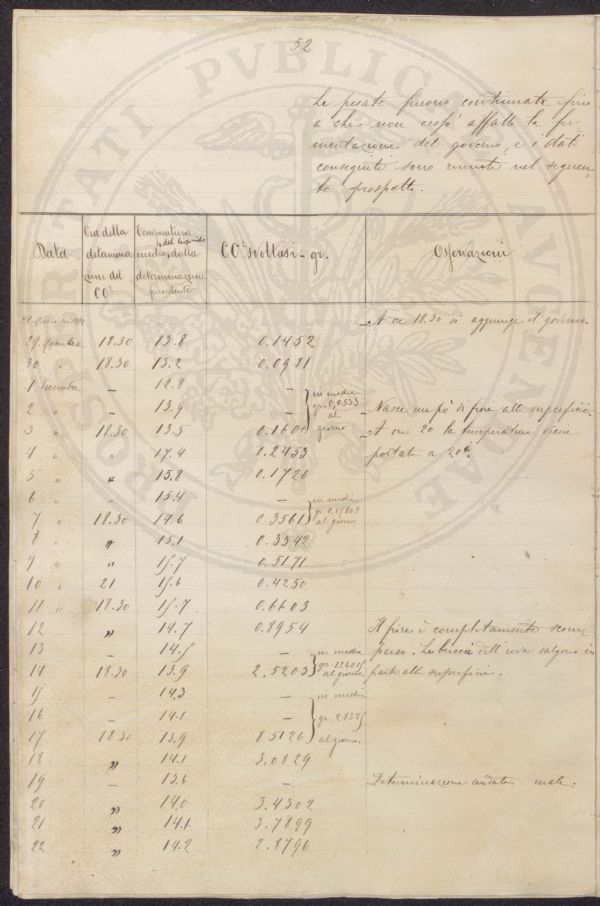 52
Le pesate furono continuate fino
a che non cessò affatto la fer-
mentazione del governo, e i dati
conseguiti sono riuniti nel seguen-
te prospetto.
Data | Ora della determinazione del CO² | Temperatura media del liquido dalla determinazione precedente | CO² svoltasi - gr. | Osservazioni
28 Novembre | A ore 18.30 si aggiunge il governo.
29 Novembre 18.30 13.8 0.1452
30 " 18.30 13.2 0.0981
1 Dicembre – 12.8 –
2 " – 13.9 – in media gr. 0,0533 al giorno | Nasce un pò di fiore alla superficie.
3 " 18.30 13.5 0.1600 | A ore 20 la temperatura viene
4 " " 17.4 0.2453 | portata a 20°.
5 " " 15.8 0.1720
6 " – 15.4 –
7 " 18.30 14.6 0.3561 in media gr. 0,17805 al giorno
8 " " 15.1 0.3542
9 " " 15.7 0.5171
10 " 21 15.6 0.4250
11 " 18.30 15.7 0.6603
12 " 14.7 0.8954 | Il fiore è completamente scom-
13 – 14.5 – | parso. Le buccie dell'uva salgono in
14 18.30 13.9 2.5203 in media gr. 1.26015 al giorno. | parte alla superficie.
15 – 14.3 –
16 – 14.1 – in media gr. 2.8375 al giorno.
17 18.30 13.9 8.5126
18 " 14.1 3.0829
19 – 13.6 – | Determinazione andata male.
20 " 14.0 3.4302
21 " 14.1 3.7899
22 " 14.2 2.8796
PVBLICAE